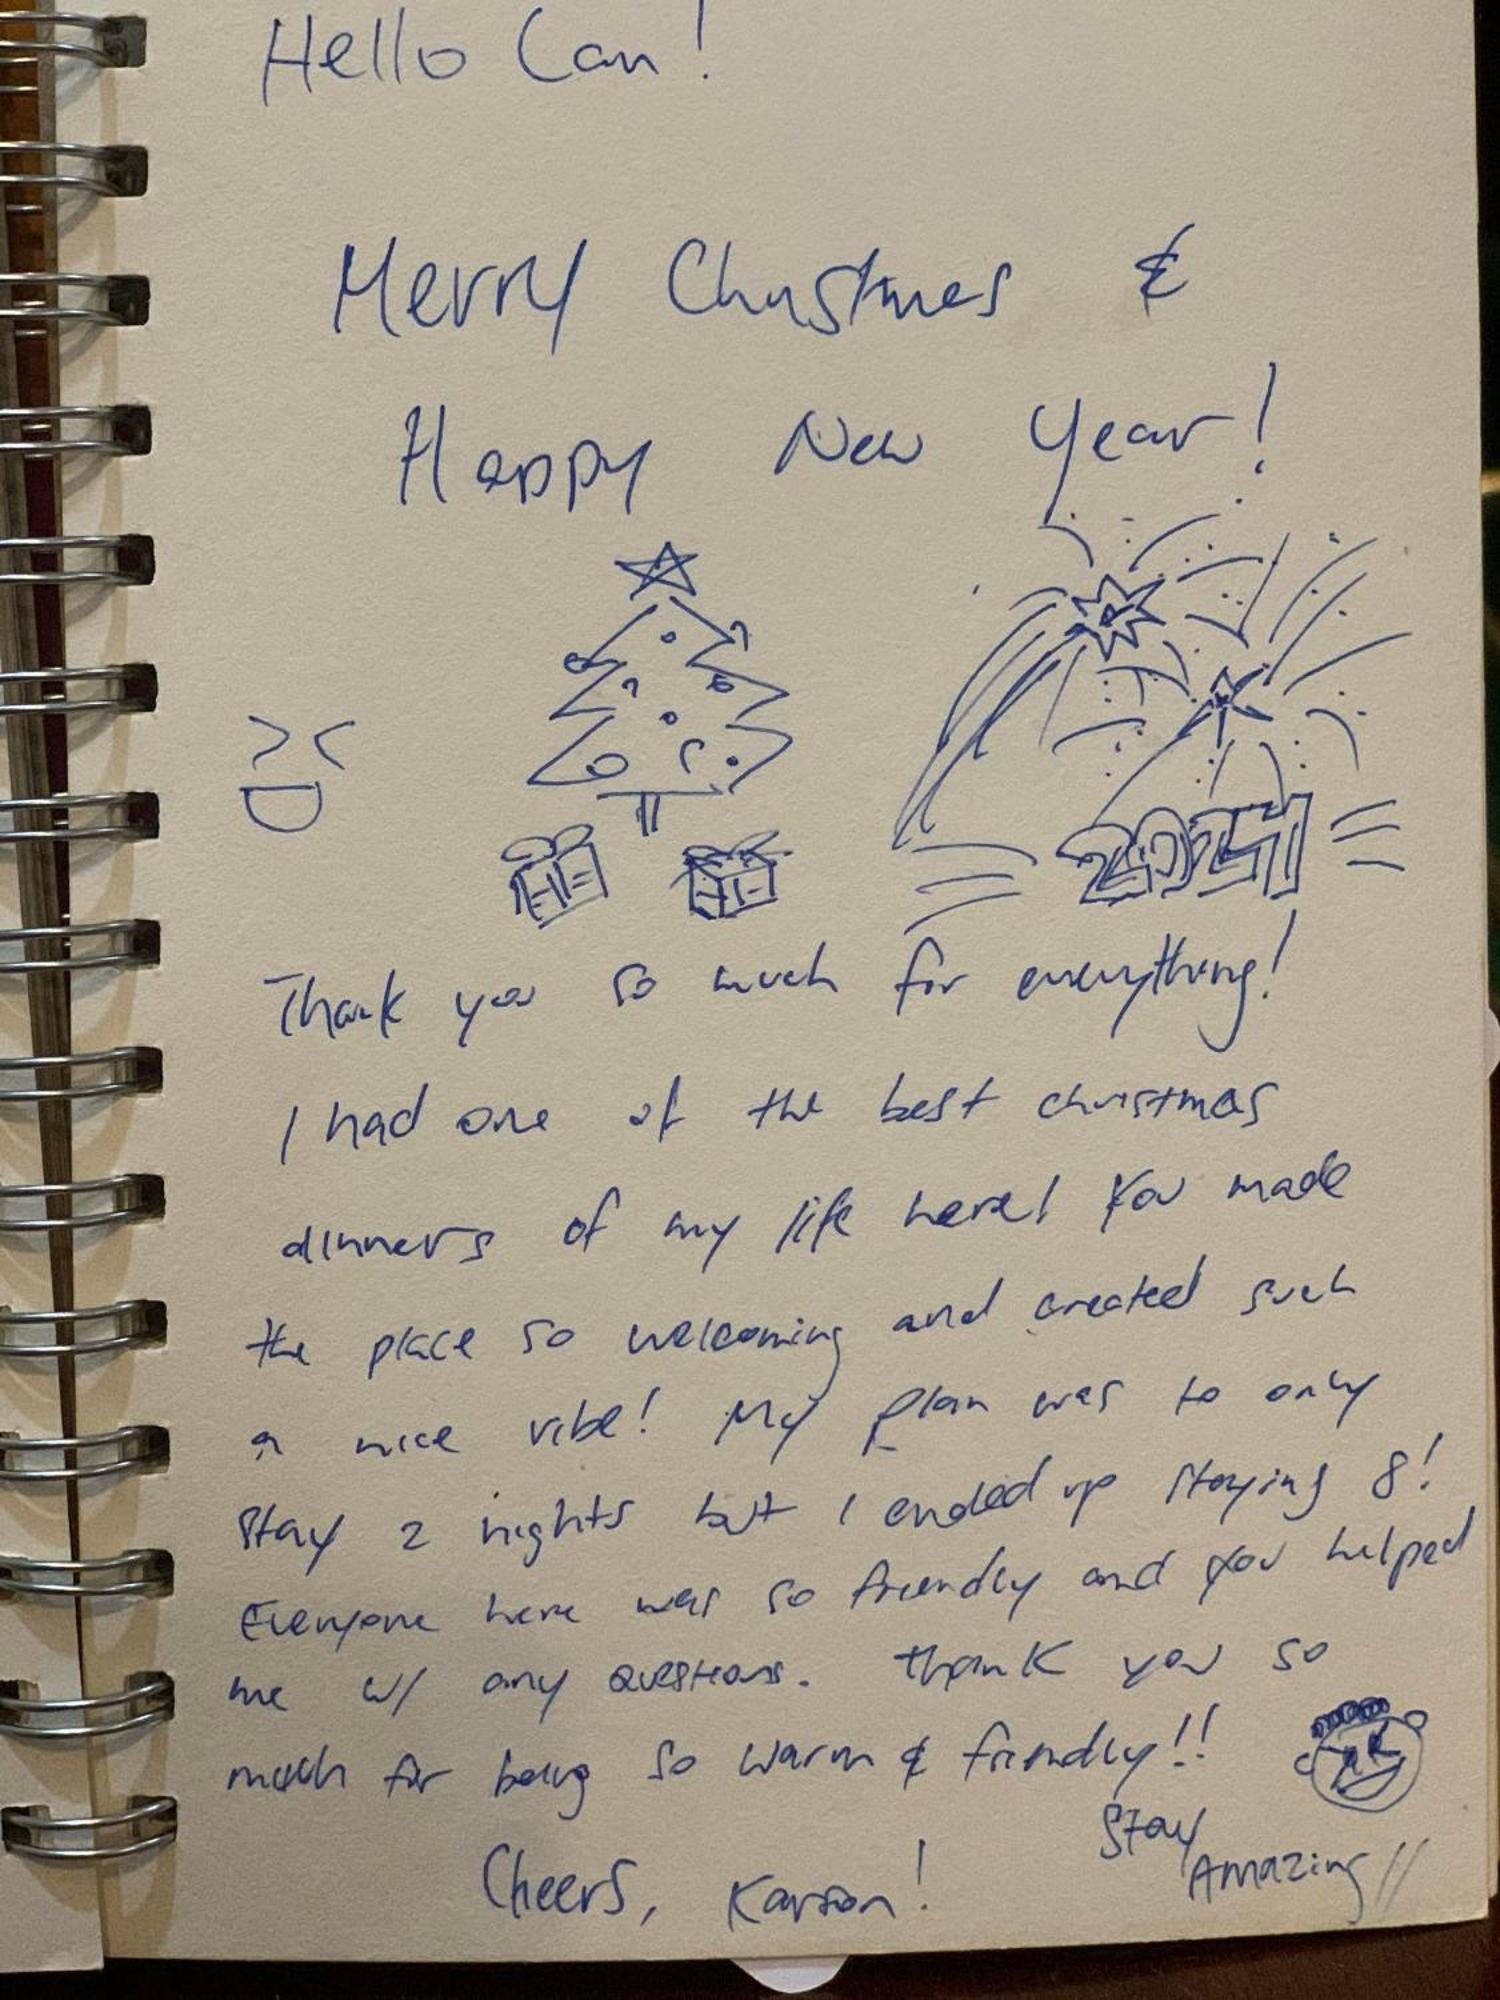 Hello Can!
Merry Christmas &
Happy New Year!
2024
Thank you so much for everything!
I had one of the best christmas
dinners of my life here! You made
the place so welcoming and created such
a nice vibe! My plan was to only
stay 2 nights but I ended up staying 8!
Everyone here was so friendly and you helped
me w/ any questions. Thank you so
much for being so warm & friendly!!
Stay
Amazing!!
Cheers, Karson!